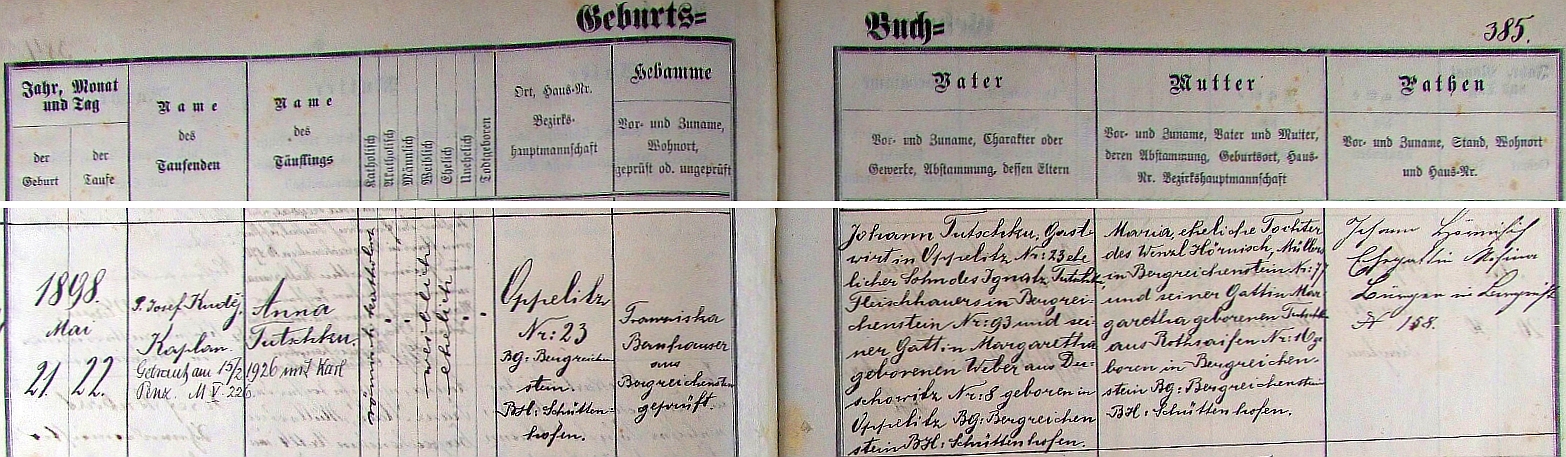 Geburts=
Buch=
385.
Jahr, Monat
und Tag
der
Geburt
der
Taufe
Name
des
Taufenden
Name
des
Täuflings
Katholisch
Akatholisch
Männlich
Weiblich
Ehelich
Unehelich
Todtgeboren
Ort, Haus-Nr.
Bezirks-
hauptmannschaft
Hebamme
Vor- und Zuname,
Wohnort,
geprüft od. ungeprüft
Vater
Vor- und Zuname, Charakter oder
Gewerke, Abstammung, dessen Eltern
Mutter
Vor- und Zuname, Vater und Mutter,
deren Abstammung, Geburtsort, Haus-
Nr. Bezirkshauptmannschaft
Pathen
Vor- und Zuname, Stand, Wohnort
und Haus-Nr.
1898.
Mai
21. 22.
P. Josef
Kaplan
Getraut am 15/2 1926 mit Karl
Penz. M V. 226.
Anna
Tutschku.
römischkatholisch
weiblich
ehelich
Oppelitz
Nr: 23
BG: Bergreichen-
stein.
BH: Schütten-
hofen.
Franziska
aus
Bergreichenstein
geprüft.
Johann Tutschku, Gast-
wirt in Oppelitz Nr: 23 ehe-
licher Sohn des Ignatz Tutschku
Fleischhauers in Bergrei-
chenstein Nr: 93 und sei-
ner Gattin Margaretha
geborenen Weber aus Du-
schowitz Nr: 8 geboren in
Oppelitz BG: Bergreichen-
stein BH: Schüttenhofen.
Maria eheliche Tochter
des Wenzl Hörnisch, Müllers
in Bergreichenstein Nr: 77
und seiner Gattin Mar-
garetha geborenen Tutschku
aus Rothsaifen Nr: 16 ge-
boren in Bergreichen-
stein BG: Bergreichenstein
BH: Schüttenhofen.
Johann Hörnisch
Ehegattin Rosina
Bürger in
N 158.